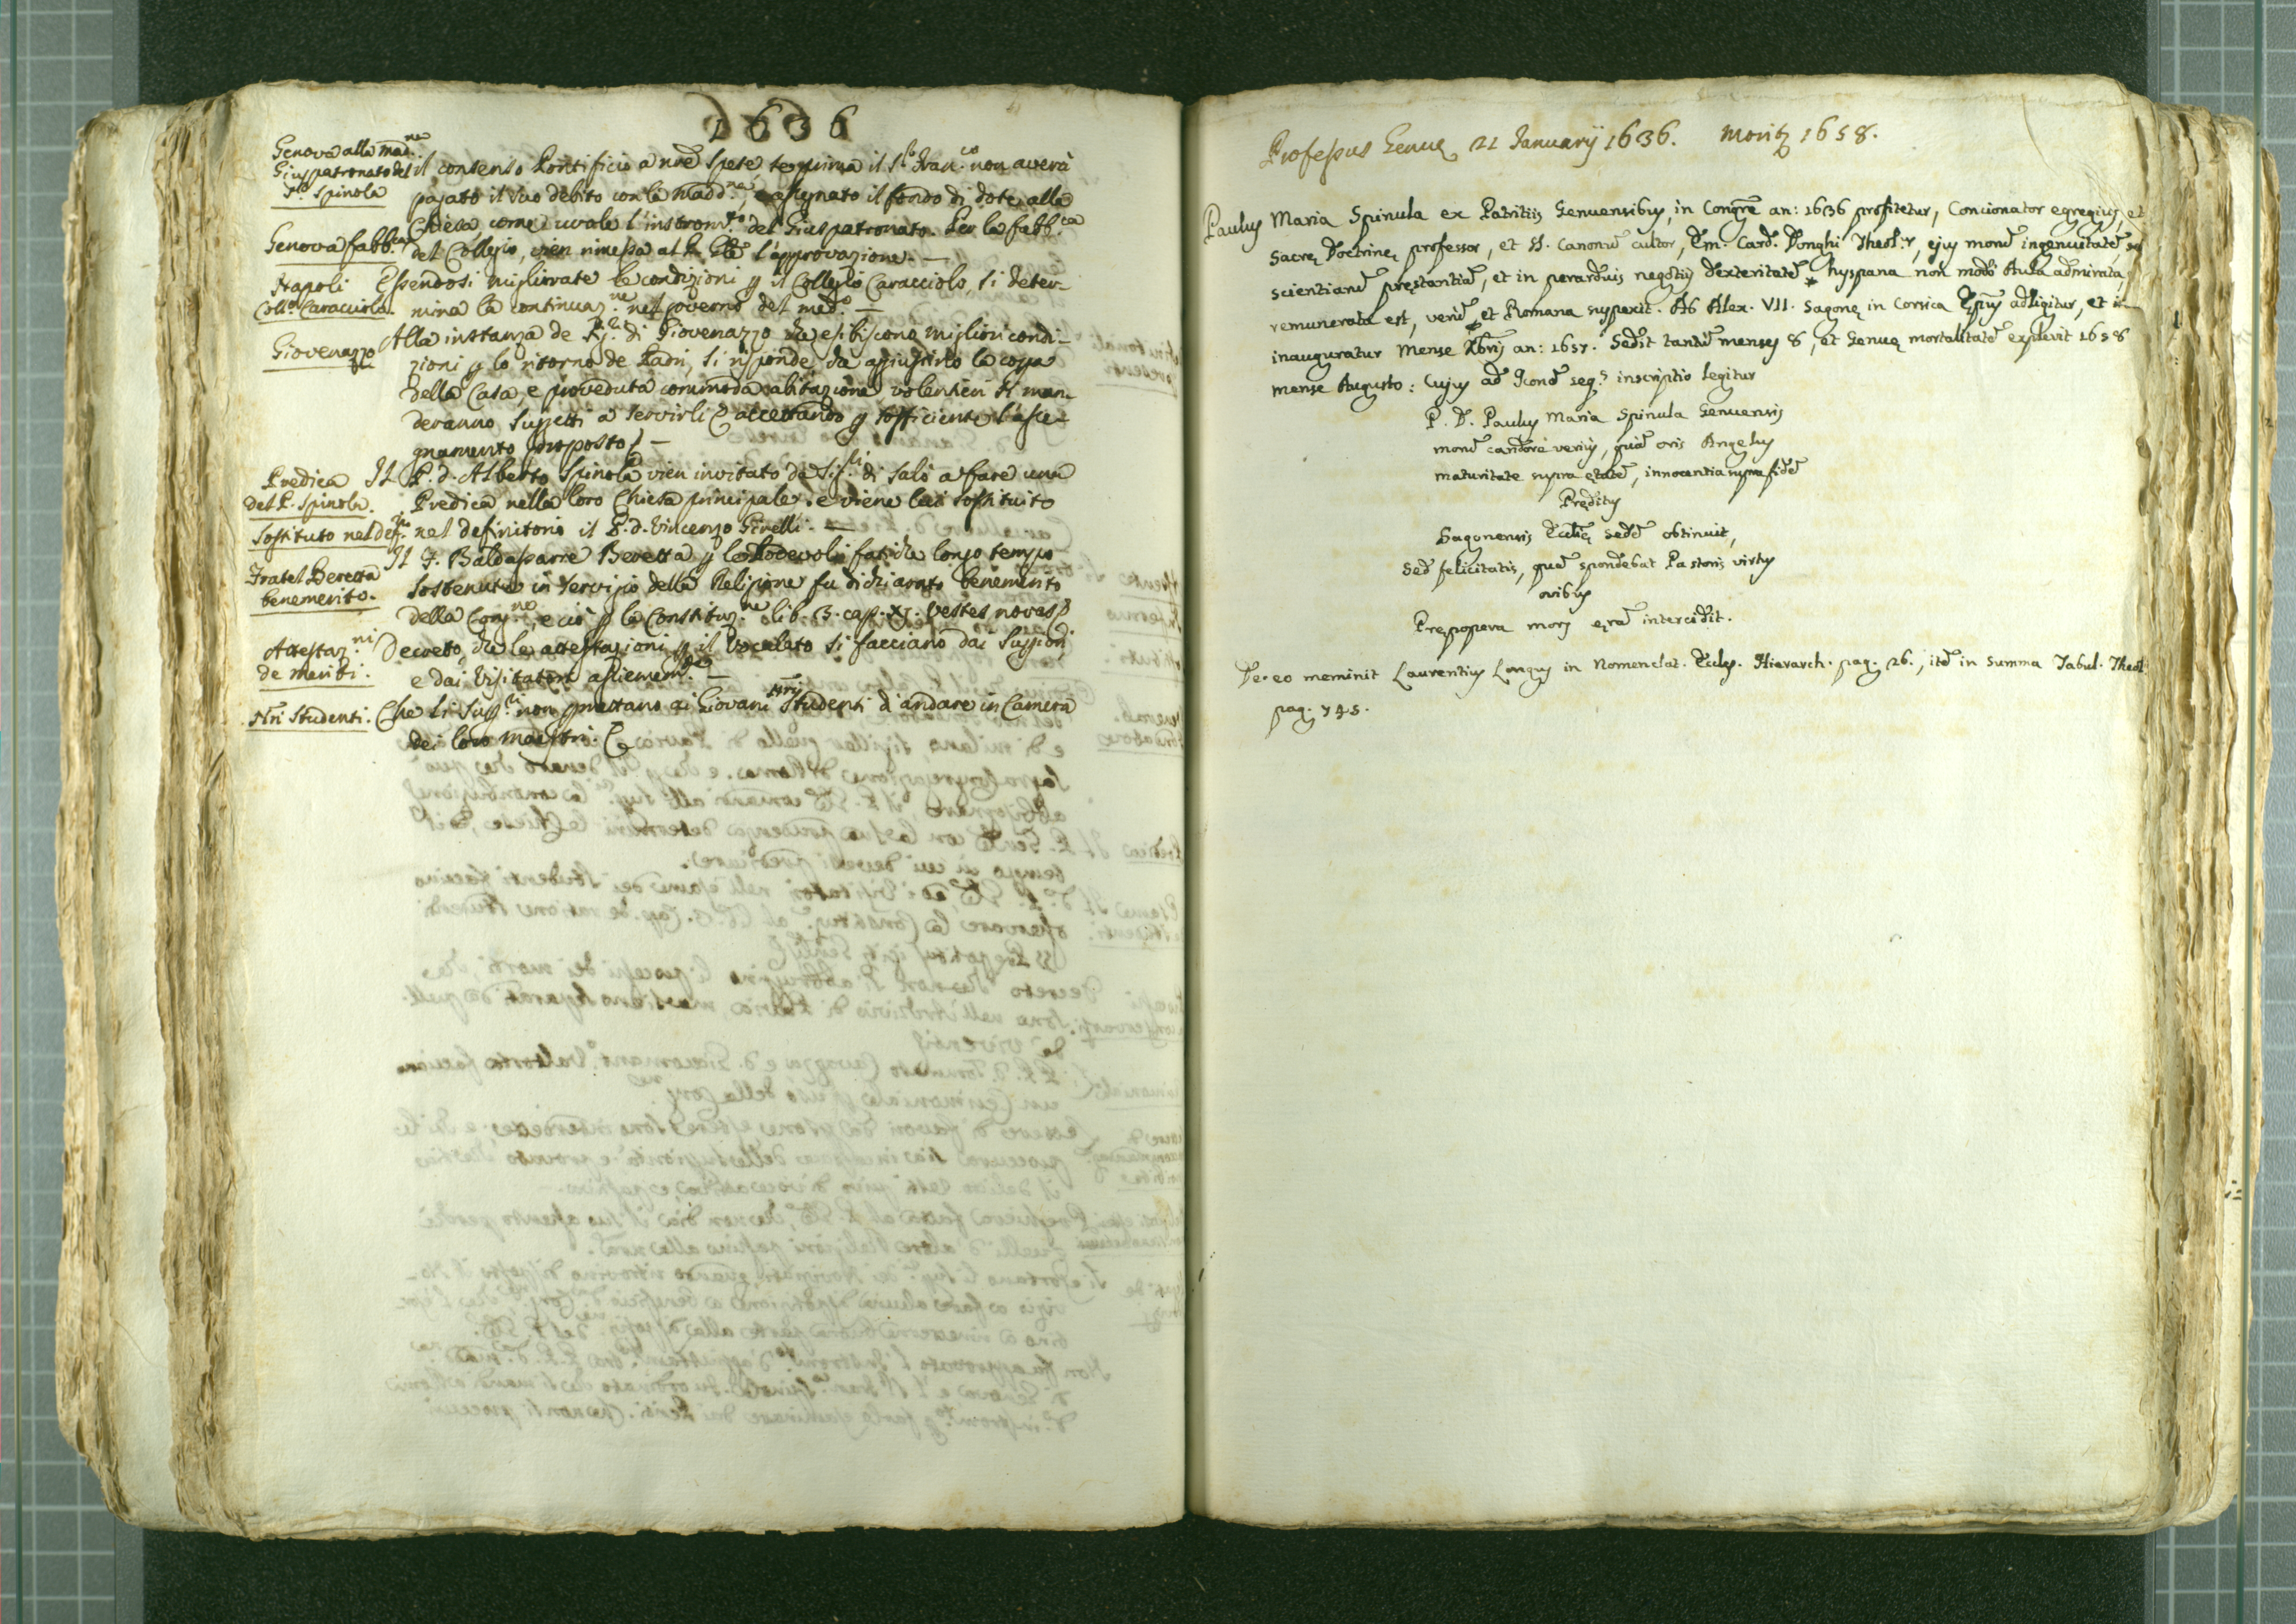 1636
Genova alla Mad.na
Giuspatronato del
Sr. Spinola
il consenso Pontificio a nre spese, se prima il Sr. Fran.co non averà
pagato il suo debito con la Madd.na, e assegnato il fondo di dote alla
Chiesa, come vuole l'instrom.to del Giuspatronato. Per la fabb.ca
Genova fabb.ca
del Collegio, vien rimessa al P. Gle l'approvazione. —
Napoli
Coll.o Caracciolo.
Essendosi migliorate le condizioni p il Collegio Caracciolo, si deter-
mina la continuaz.ne nel governo del med.o —
Giovenazzo
Alla instanza de Sig.ri di Giovenazzo che esibiscono migliori condi-
zioni p lo ritorno de Padri, si risponde, che aggiustino la cosa
della Casa, e proveduta commoda abitazione volentieri si man-
deranno suggetti a servirli (accettando p sofficiente l'asse-
gnamento proposto) —
Predica
del P. Spinola.
Sostituto nel def.rio
Il P. d. Alberto Spinola vien invitato da Sig.ri di Salò a fare una
Predica nella loro Chiesa principale. e viene lui sostituito
nel definitorio il P. d. Vincenzo Girelli. —
Fratel Beretta
benemerito.
Il F. Baldassarre Beretta p le lodevoli fatiche longo tempo
sostenute in servizio della Religione fu dichiarato benemerito
della Cong.ne, e ciò p la Constituz.ne lib. 3. cap. XI. Vestes novas).
Attestaz.ni
de meriti.
Decreto, che le attestazioni p il Vocalato si facciano dai Suppiori
e dai Visitatori assiemem.te —
Nri Studenti.
Che li Supp.ri non pmettano ai Giovani nri Studenti d'andare in Camera
dei loro Maestri.
Professus Genuę 21 Januarij 1636. Moritur 1658.
Paulus Maria Spinula ex Patritiis Genuensibus, in Congre an: 1636 profitetur, Concionator egregius, et
Sacrę Doctrinę professor, et SS. Canonum cultor, Em. Card. Donghi Theol.s, ejus morum ingenuitatem,
scientiarum pręstantiam, et in perarduis negotiis dexteritatem * hyspana non modò Aula admirata,
remunerata est, verum et Romana suspexit. Ab Alex. VII. Sagonę in Corsica Epus adligitur, et
inauguratur Mense Xbris an: 1657. Sedit tantum menses 8, et Genuę mortalitatem explevit 1658
mense Augusto: Cujus ad Iconem seq.s inscriptio legitur
P. D. Paulus Maria Spinula Genuensis
morum candore verius, quàm oris Angelus
maturitate supra ętatem, innocentia supra fidem
Pręditus
Sagonensis Eccłię sedem obtinuit,
Sed felicitatis, quam spondebat Pastoris virtus
ovibus
Prępopera mors ęram intercidit.
De eo meminit Laurentius Longus in Nomenclat. Eccłes. Hierarch. pag. 26., item in Summa Tabul. Theol.
pag. 745.